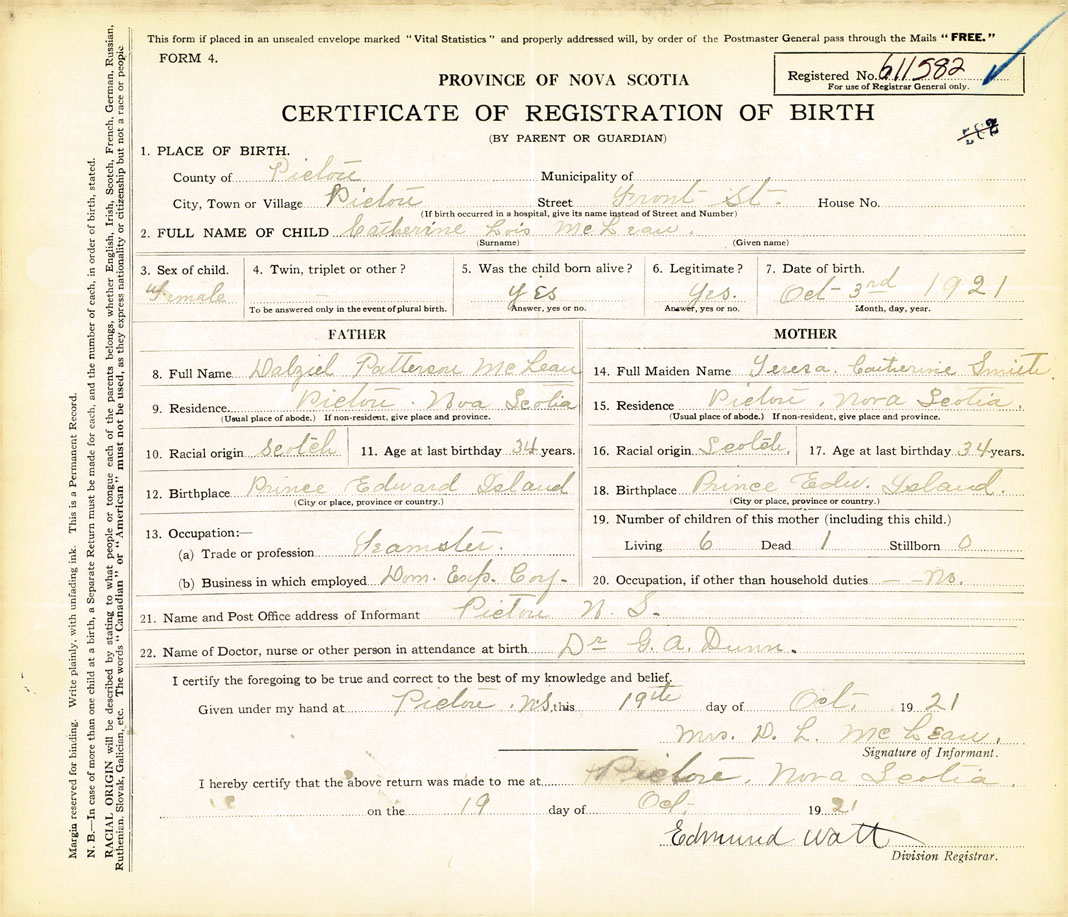 This form if placed in an unsealed envelope marked "Vital Statistics" and properly addressed will, by order of the Postmaster General pass through the Mails "FREE."
FORM 4.
Registered No. 611582
For use of Registrar General only.
PROVINCE OF NOVA SCOTIA
CERTIFICATE OF REGISTRATION OF BIRTH
(BY PARENT OR GUARDIAN)
1. PLACE OF BIRTH.
County of Pictou Municipality of
City, Town or Village Pictou Street Front St. House No.
(If birth occurred in a hospital, give its name instead of Street and Number)
2. FULL NAME OF CHILD Catherine Lois McLean.
(Surname) (Given name)
3. Sex of child. 4. Twin, triplet or other? 5. Was the child born alive? 6. Legitimate? 7. Date of birth.
Female — yEs yes. Oct 3rd 1921
To be answered only in the event of plural birth. Answer, yes or no. Answer, yes or no. Month, day, year.
FATHER
8. Full Name Dalziel Patterson McLean
9. Residence Pictou. Nova Scotia
(Usual place of abode.) If non-resident, give place and province.
10. Racial origin Scotch 11. Age at last birthday 34 years.
12. Birthplace Prince Edward Island
(City or place, province or country.)
13. Occupation:—
(a) Trade or profession Teamster.
(b) Business in which employed Dom. Exp. Coy.
MOTHER
14. Full Maiden Name Teresa Catherine Smith.
15. Residence Pictou Nova Scotia.
(Usual place of abode.) If non-resident, give place and province.
16. Racial origin Scotch. 17. Age at last birthday 34 years.
18. Birthplace Prince Edw. Island.
(City or place, province or country.)
19. Number of children of this mother (including this child.)
Living 6 Dead 1 Stillborn 0
20. Occupation, if other than household duties — — no.
21. Name and Post Office address of Informant Pictou N. S.
22. Name of Doctor, nurse or other person in attendance at birth Dr G. A. Dunn.
I certify the foregoing to be true and correct to the best of my knowledge and belief.
Given under my hand at Pictou. N.S. this 19th day of Oct. 1921
Mrs. D. L. McLean.
Signature of Informant.
I hereby certify that the above return was made to me at Pictou. Nova Scotia
on the 19 day of Oct. 1921
Edmund Watt
Division Registrar.
Margin reserved for binding. Write plainly, with unfading ink. This is a Permanent Record.
N. B.—In case of more than one child at a birth, a Separate Return must be made for each, and the number of each, in order of birth, stated.
RACIAL ORIGIN will be described by stating to what people or tongue each of the parents belongs, whether English, Irish, Scotch, French, German, Russian,
Ruthenian, Slovak, Galician, etc. The words "Canadian" or "American" must not be used, as they express nationality or citizenship but not a race or people